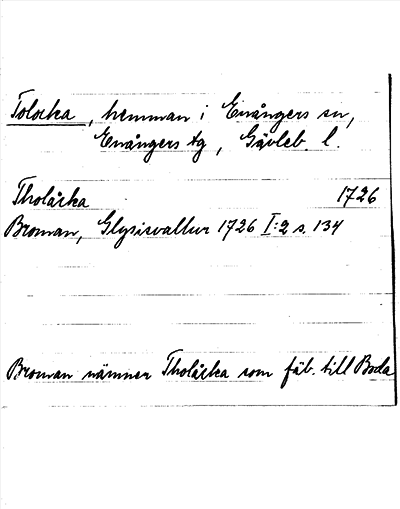 Tolocka, hemman i Enångers sn,
Enångers tg, Gävleb. l.
Tholåcka 1726
Broman, Glysisvallur 1726 I:2 s. 134
Broman nämner Tholåcka som fäb. till Boda